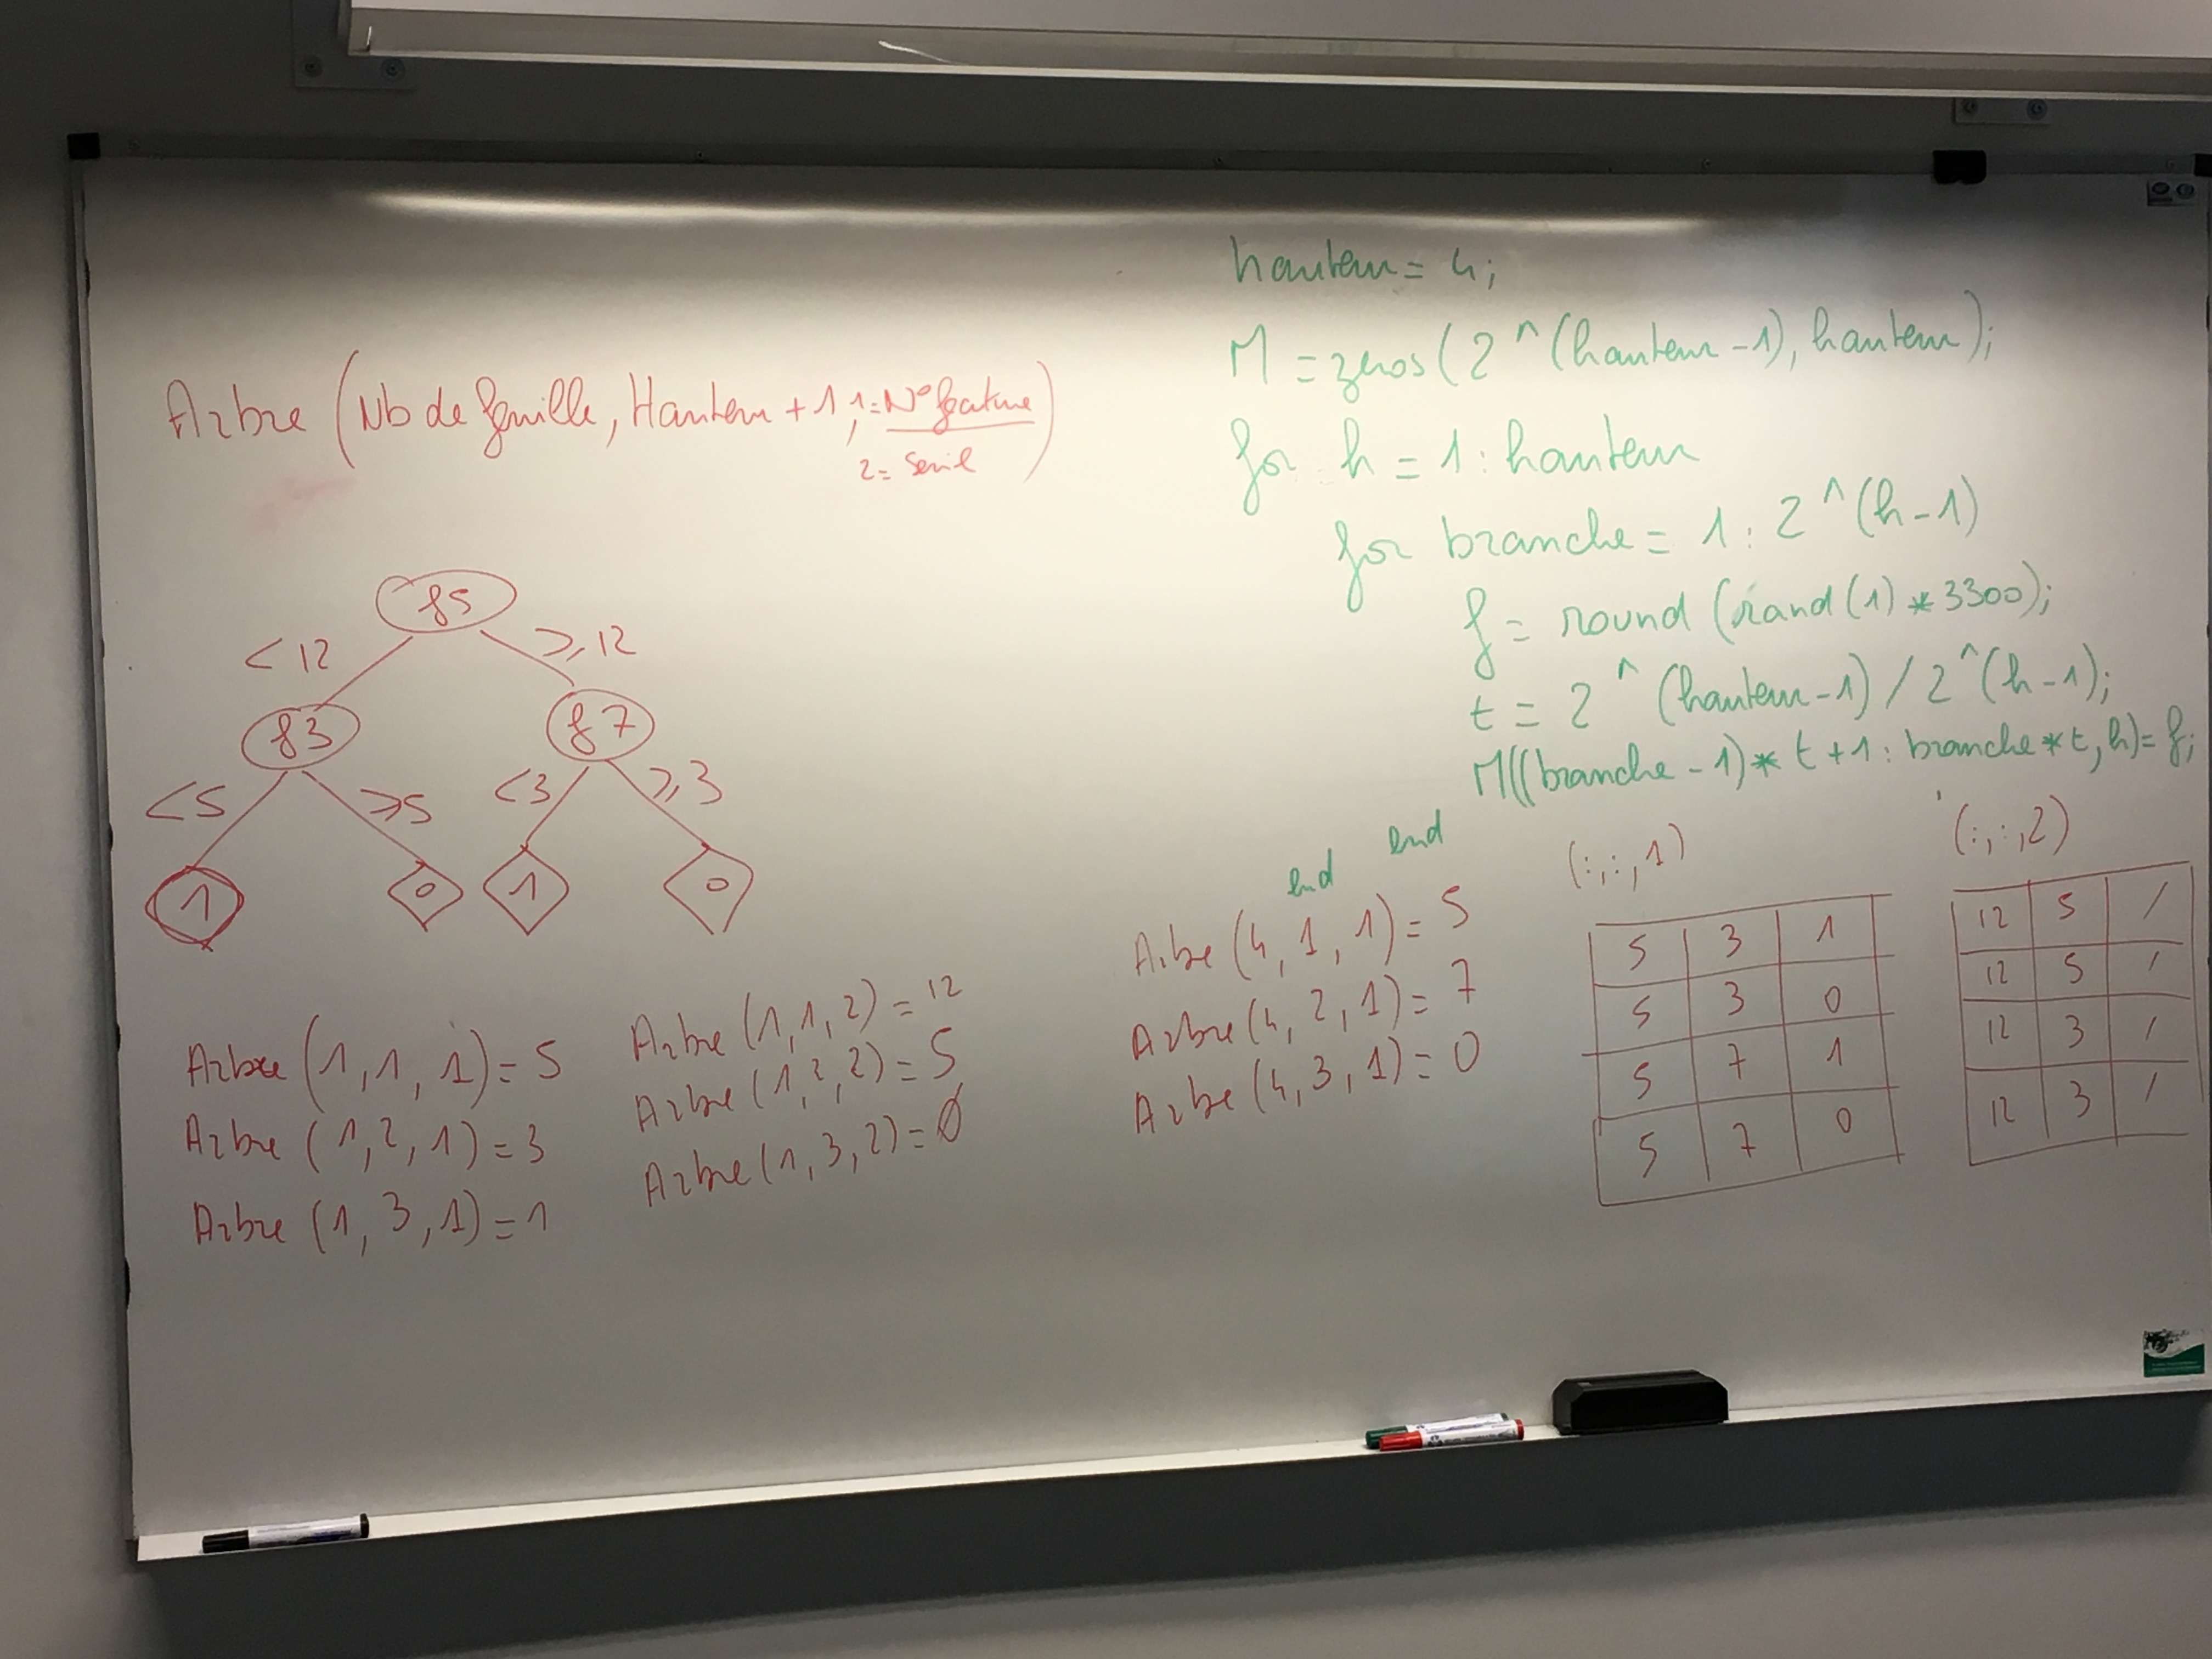 Arbre (Nb de feuille, Hauteur + 1, 1 = N° feature
2 = Seuil)
f5
< 12
≥ 12
f3
f7
< 5
≥ 5
< 3
≥ 3
1
0
1
0
Arbre (1, 1, 1) = 5
Arbre (1, 2, 1) = 3
Arbre (1, 3, 1) = 1
Arbre (1, 1, 2) = 12
Arbre (1, 2, 2) = 5
Arbre (1, 3, 2) = Ø
hauteur = 4;
M = zeros (2 ^ (hauteur - 1), hauteur);
for h = 1 : hauteur
for branche = 1 : 2 ^ (h - 1)
f = round (rand (1) * 3300);
t = 2 ^ (hauteur - 1) / 2 ^ (h - 1);
M((branche - 1) * t + 1 : branche * t, h) = f;
end
end
Arbre (4, 1, 1) = 5
Arbre (4, 2, 1) = 7
Arbre (4, 3, 1) = 0
(:, :, 1)
5 3 1
5 3 0
5 7 1
5 7 0
(:, :, 2)
12 5 /
12 5 /
12 3 /
12 3 /